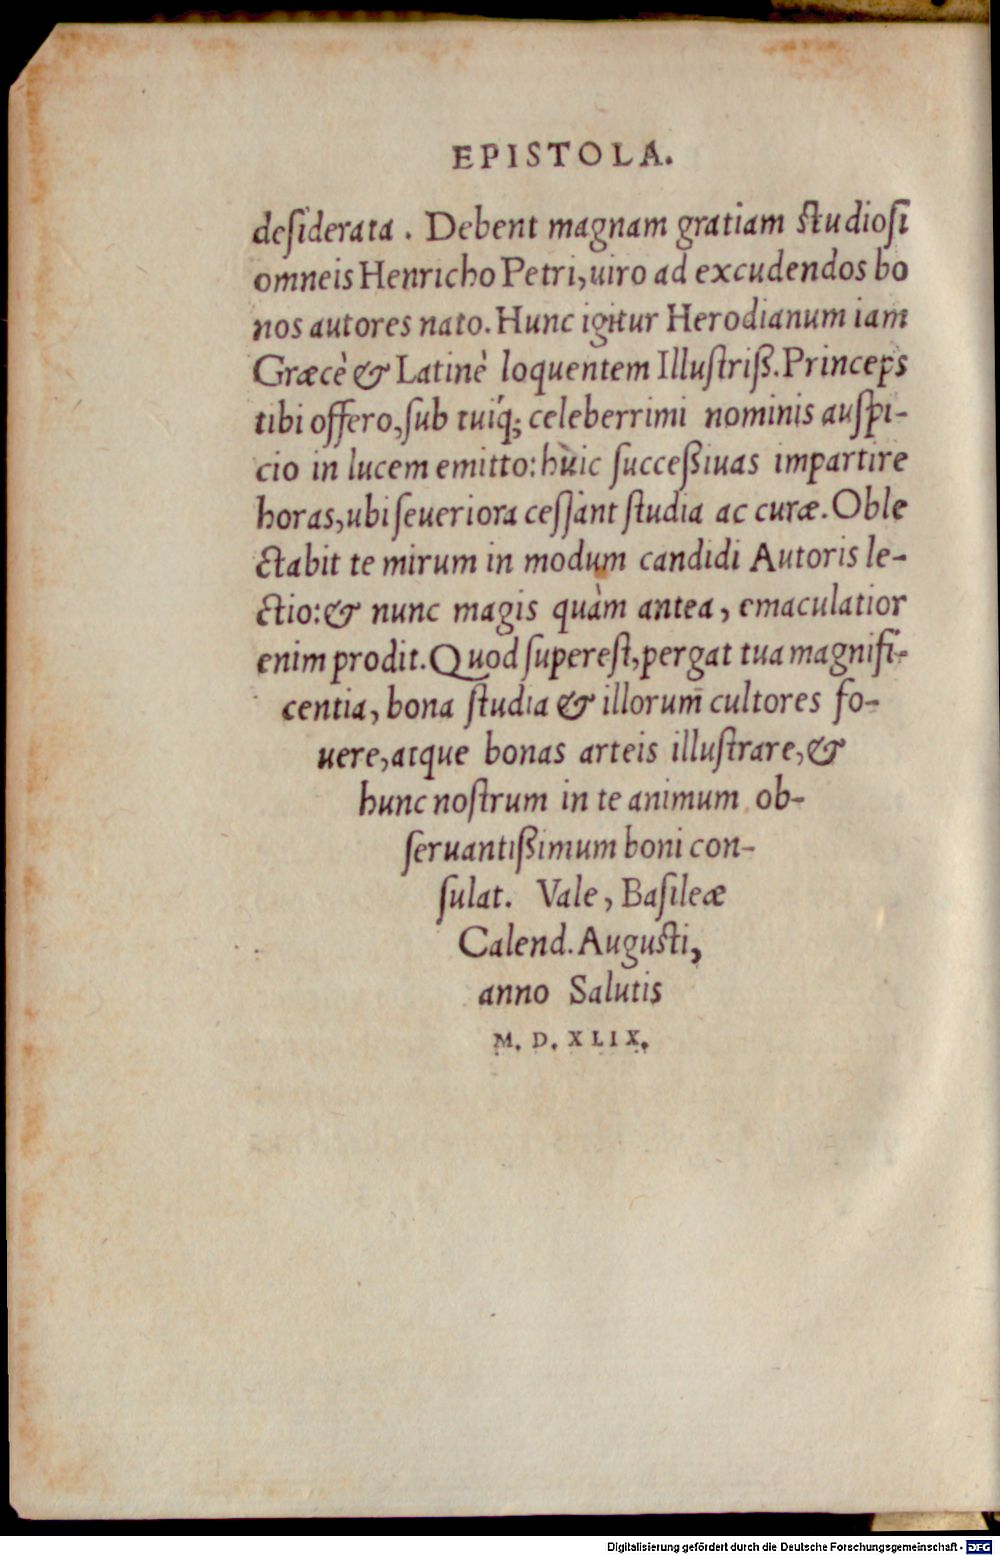 EPISTOLA.
deſiderata . Debent magnam gratiam ſtudioſi
omneis Henricho Petri, uiro ad excudendos bo
nos autores nato. Hunc igitur Herodianum iam
Græcè & Latinè loquentem Illuſtriß. Princeps
tibi offero, ſub tuíq; celeberrimi nominis auſpi-
cio in lucem emitto: huic ſucceßiuas impartire
horas, ubi ſeueriora ceſſant ſtudia ac curæ. Oble
ctabit te mirum in modum candidi Autoris le-
ctio: & nunc magis quàm antea, emaculatior
enim prodit. Quod ſupereſt, pergat tua magnifi-
centia, bona ſtudia & illorum cultores fo-
uere, atque bonas arteis illuſtrare, &
hunc noſtrum in te animum ob-
ſeruantißimum boni con-
ſulat. Vale, Baſileæ
Calend. Auguſti,
anno Salutis
M. D. XLIX.
Digitalisierung gefördert durch die Deutsche Forschungsgemeinschaft - DFG